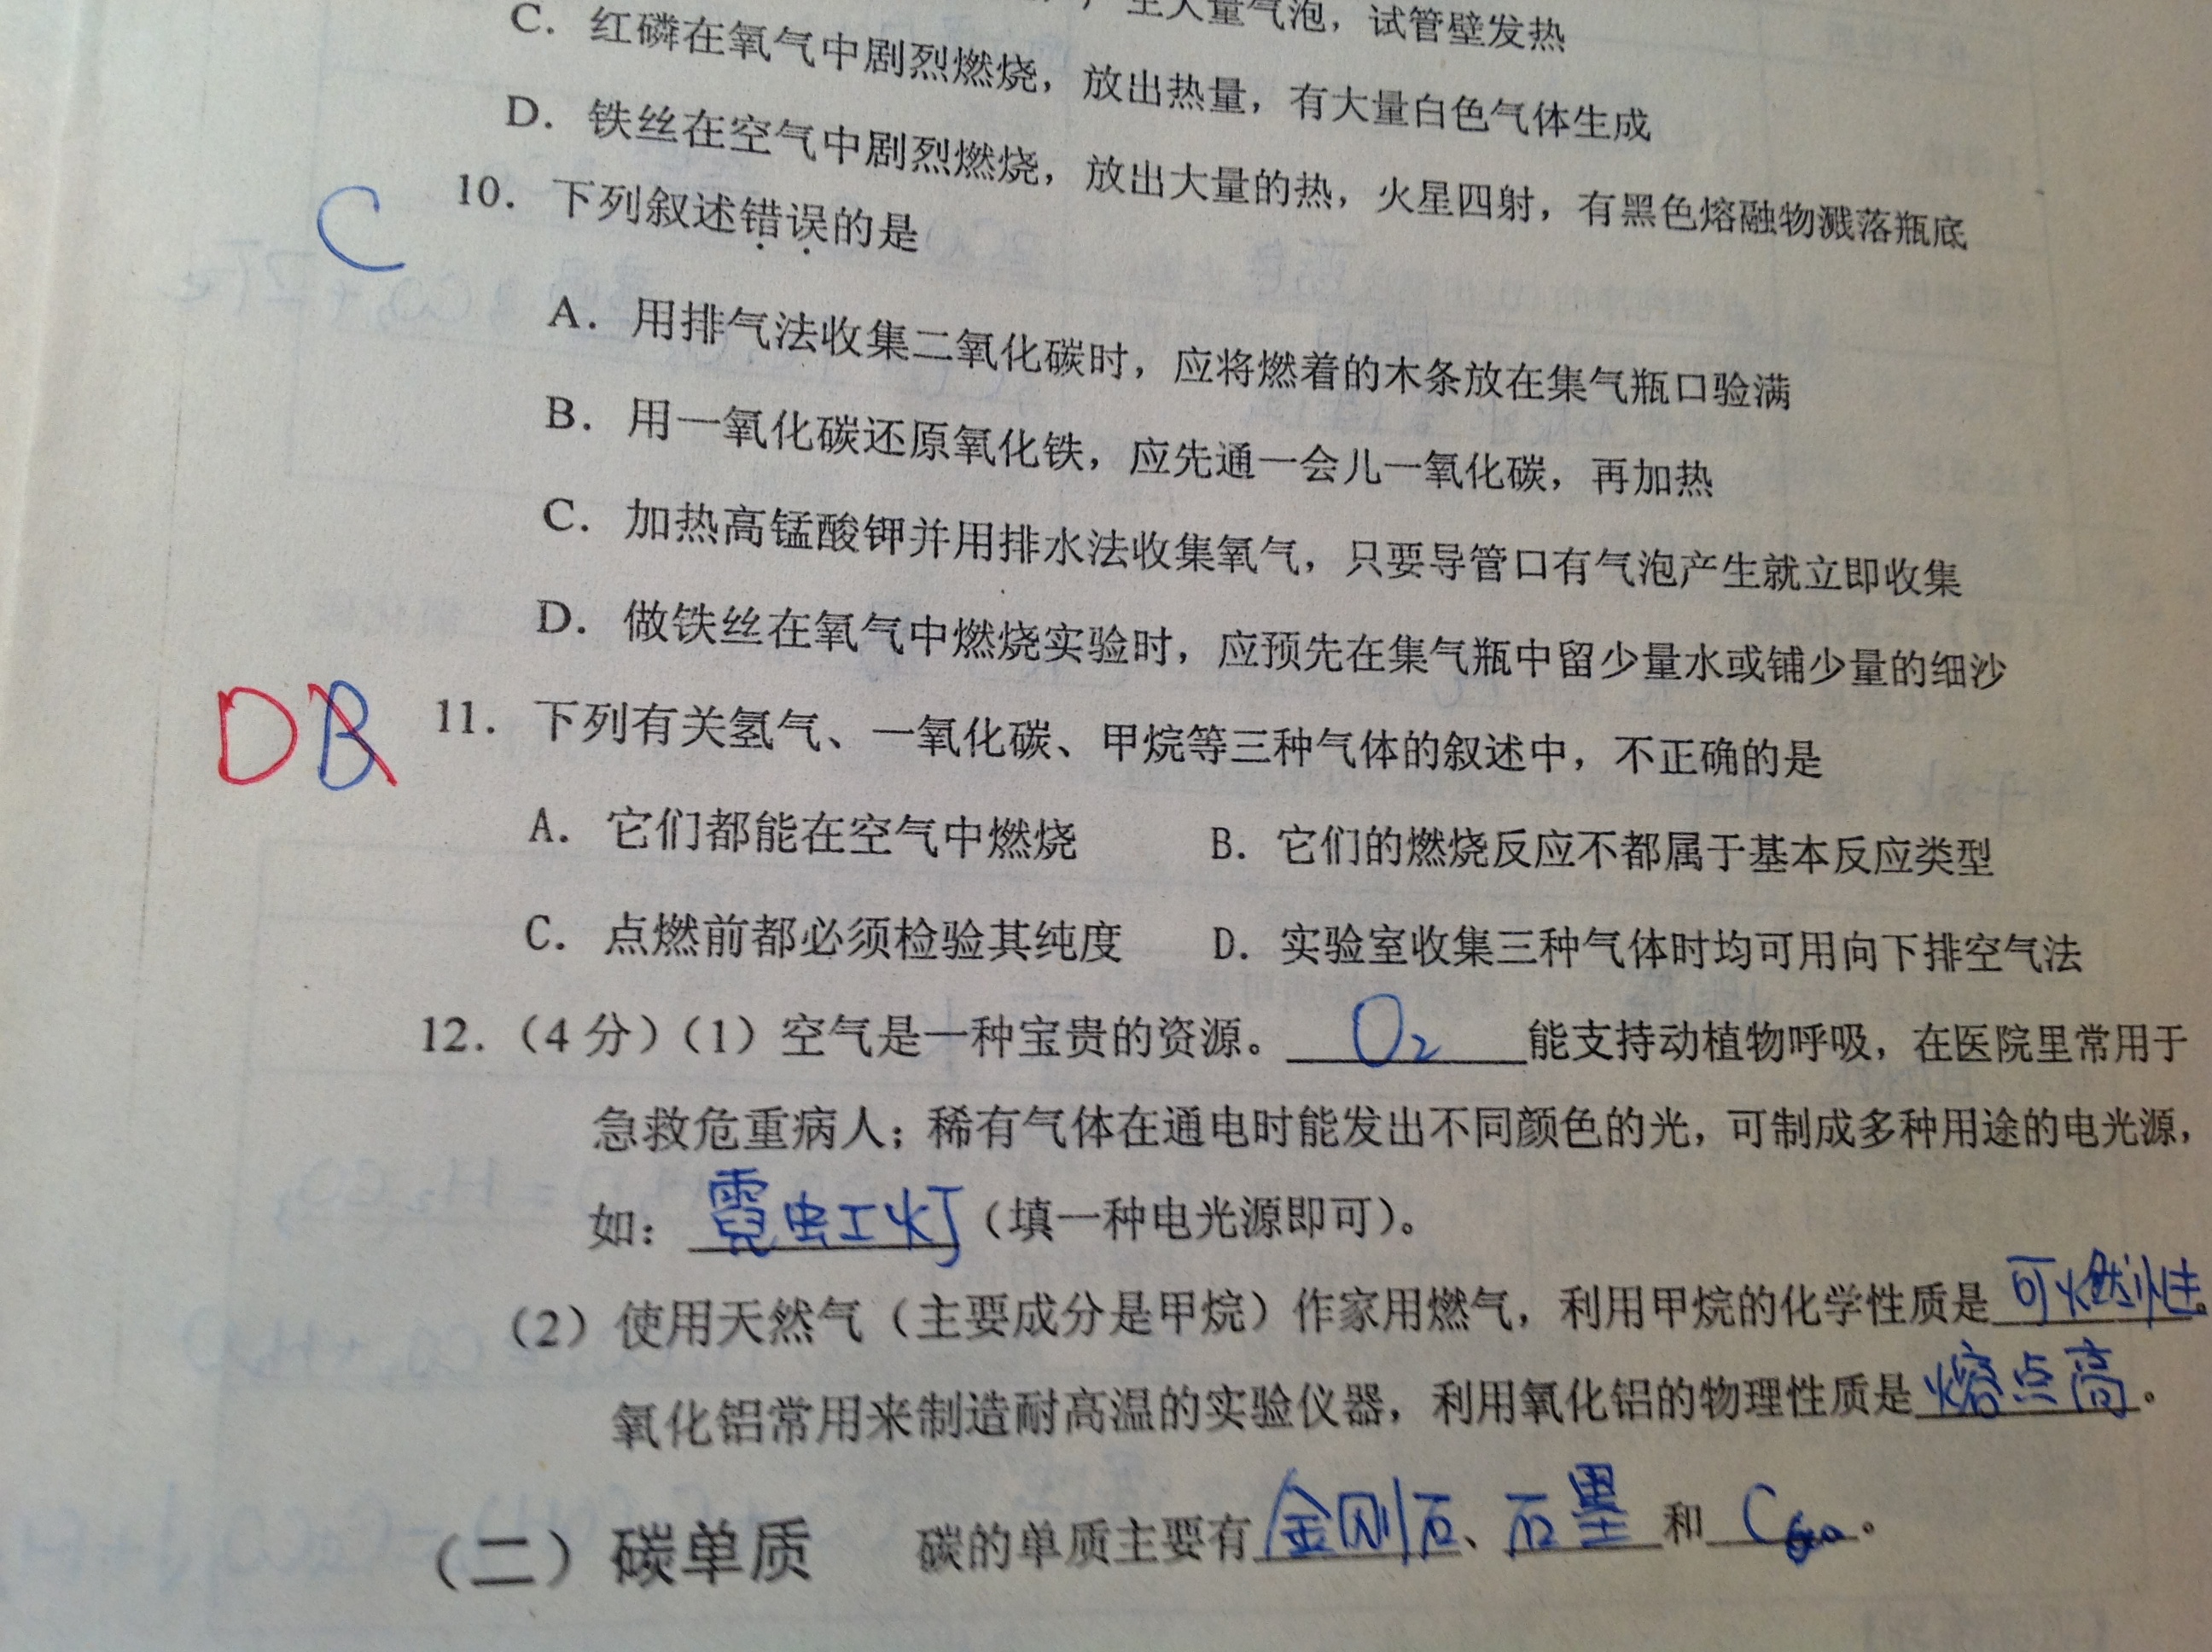 产生大量气泡，试管壁发热
C．红磷在氧气中剧烈燃烧，放出热量，有大量白色气体生成
D．铁丝在空气中剧烈燃烧，放出大量的热，火星四射，有黑色熔融物溅落瓶底
C 10．下列叙述错误的是
A．用排气法收集二氧化碳时，应将燃着的木条放在集气瓶口验满
B．用一氧化碳还原氧化铁，应先通一会儿一氧化碳，再加热
C．加热高锰酸钾并用排水法收集氧气，只要导管口有气泡产生就立即收集
D．做铁丝在氧气中燃烧实验时，应预先在集气瓶中留少量水或铺少量的细沙
D B 11．下列有关氢气、一氧化碳、甲烷等三种气体的叙述中，不正确的是
A．它们都能在空气中燃烧 B．它们的燃烧反应不都属于基本反应类型
C．点燃前都必须检验其纯度 D．实验室收集三种气体时均可用向下排空气法
12．（4分）（1）空气是一种宝贵的资源。O₂能支持动植物呼吸，在医院里常用于
急救危重病人；稀有气体在通电时能发出不同颜色的光，可制成多种用途的电光源，
如：霓虹灯（填一种电光源即可）。
（2）使用天然气（主要成分是甲烷）作家用燃气，利用甲烷的化学性质是可燃性。
氧化铝常用来制造耐高温的实验仪器，利用氧化铝的物理性质是熔点高。
（二）碳单质 碳的单质主要有金刚石、石墨和C₆₀。